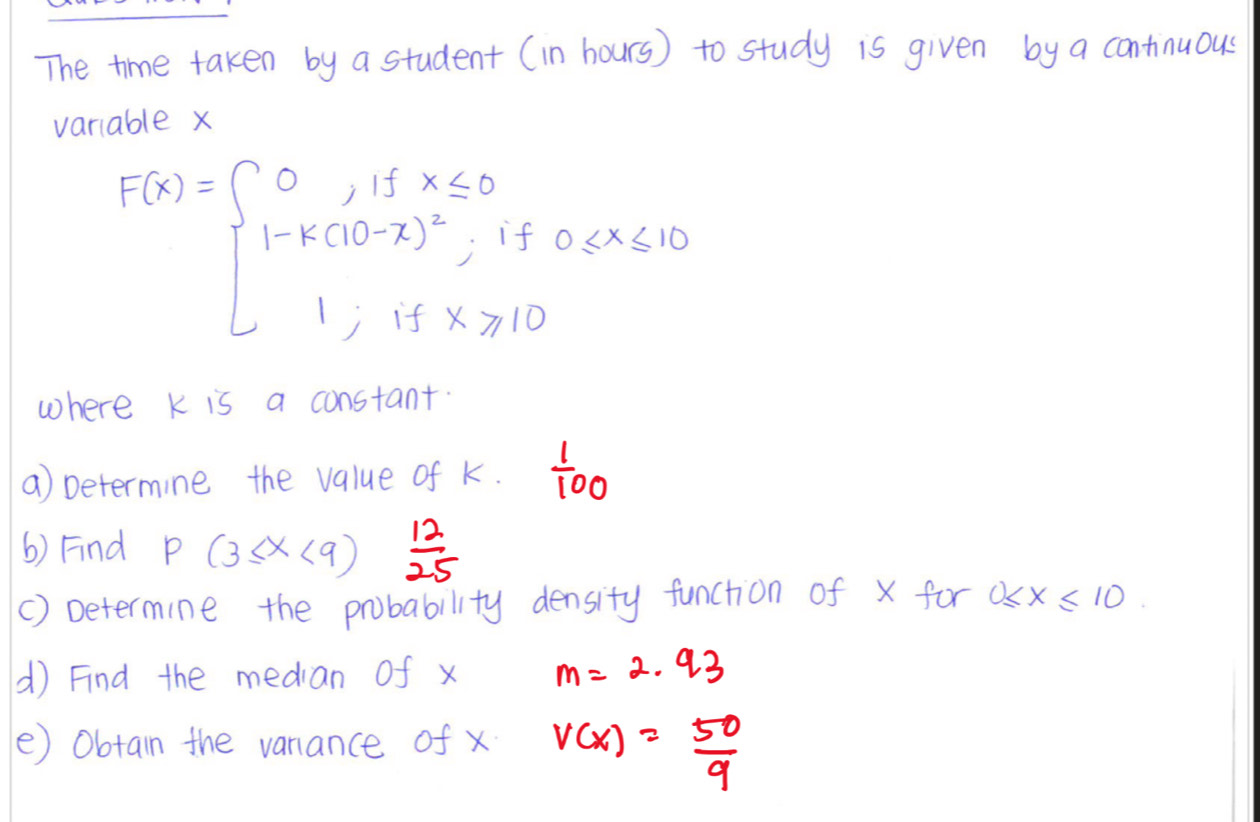 The time taken by a student (in hours) to study is given by a continuous
variable x
F(x) = { 0 ; if x ≤ 0
1-K(10-x)² ; if 0 ≤ x ≤ 10
1 ; if x ⩾ 10
where k is a constant.
a) Determine the value of k. 1/100
b) Find P (3 ≤ x < 9) 12/25
c) Determine the probability density function of x for 0 ≤ x ≤ 10.
d) Find the median of x m = 2.93
e) Obtain the variance of x. V(x) = 50/9